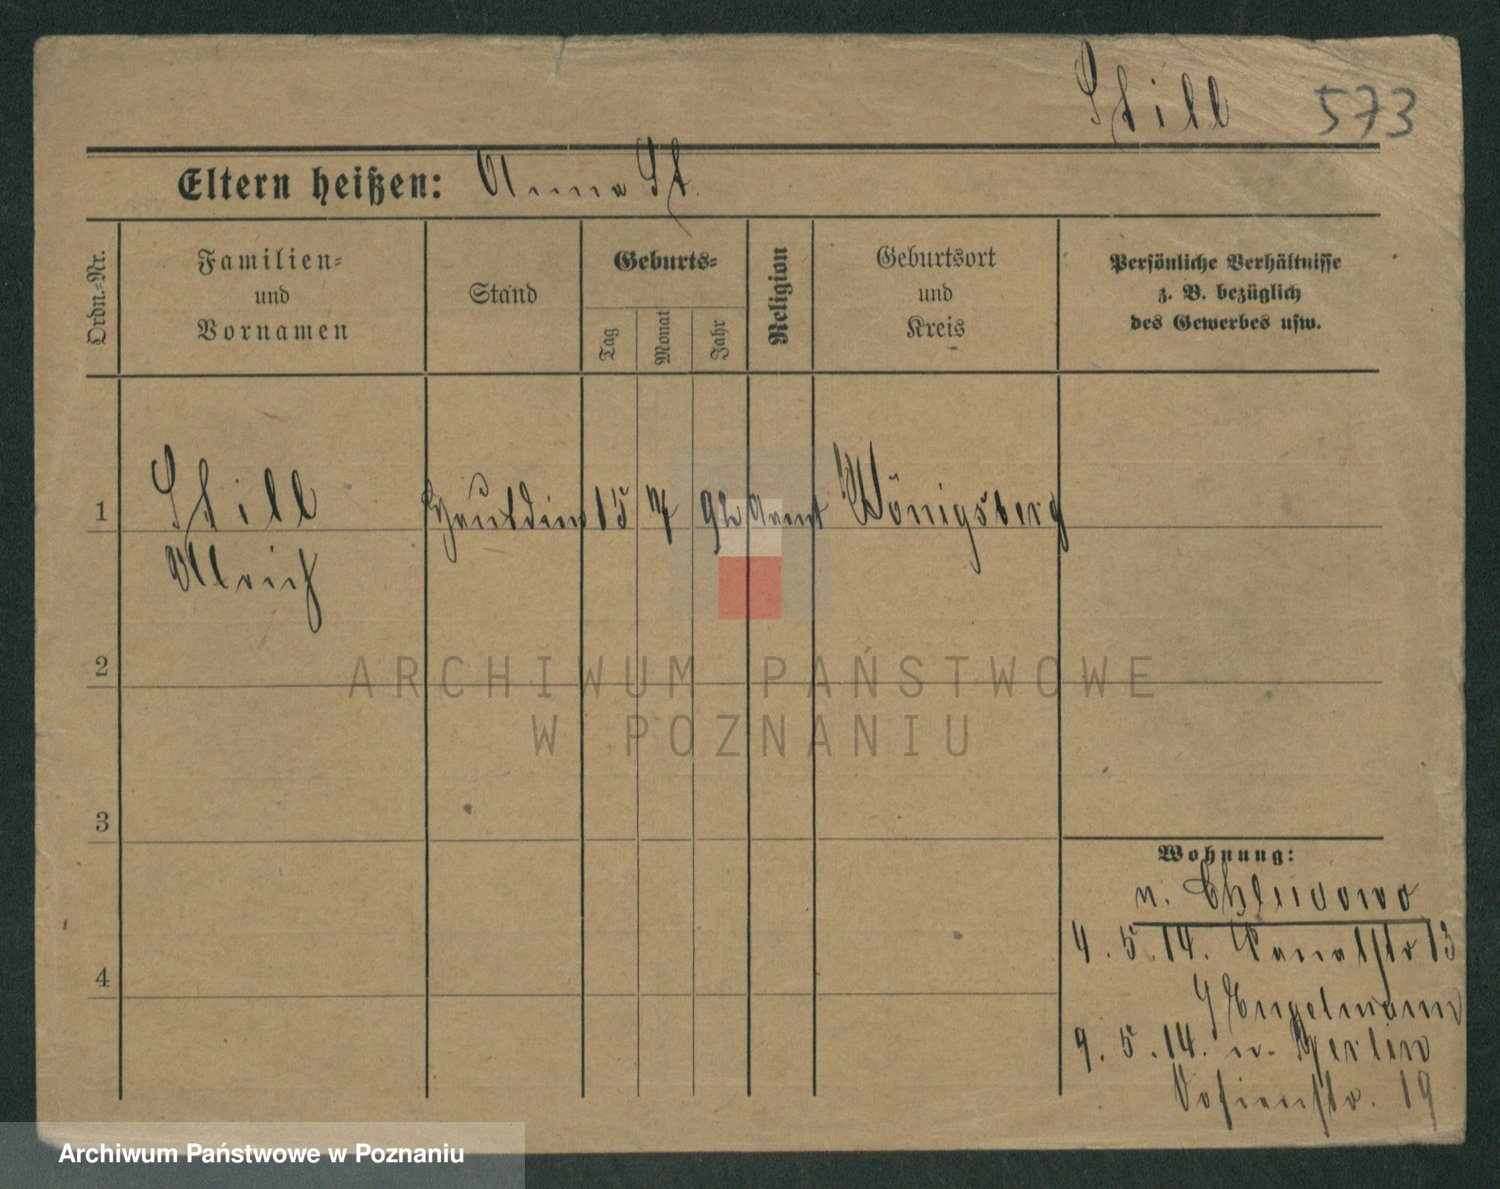 Still 573
Eltern heißen: Anna St.
Ordn.-Nr.
Familien-
und
Vornamen
Stand
Geburts-
Tag
Monat
Jahr
Religion
Geburtsort
und
Kreis
Persönliche Verhältnisse
z. B. bezüglich
des Gewerbes usw.
1
Still 15 92 Königsberg
Ullrich
2
ARCHIWUM PAŃSTWOWE
W POZNANIU
3
Wohnung:
n. Chludowo
4
4. 5. 14. Kanalstr 13
Engelmann
9. 5. 14. n. Berlin
Sofienstr. 19
Archiwum Państwowe w Poznaniu